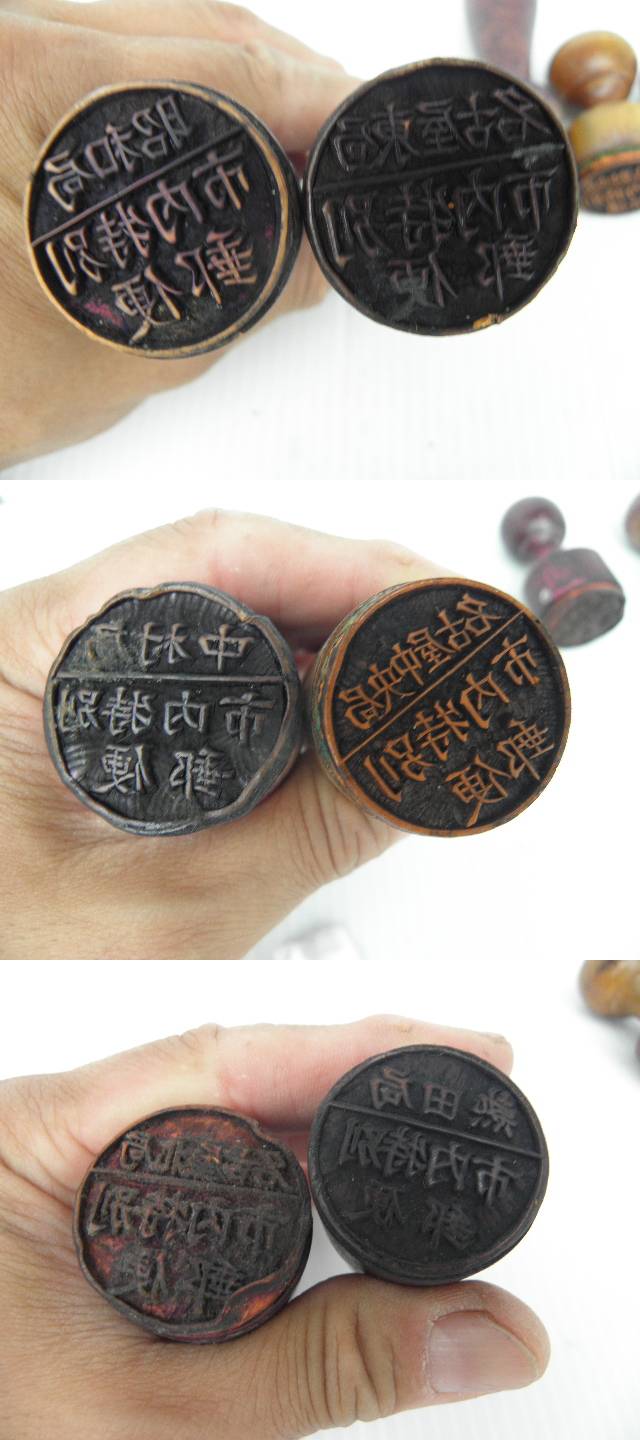 昭和局
市内特別
郵便
名古屋東局
市内特別
郵便
中村
市内特別
郵便
名古屋中央局
市内特別
郵便
市内特別
郵便
熱田局
市内特別
郵便